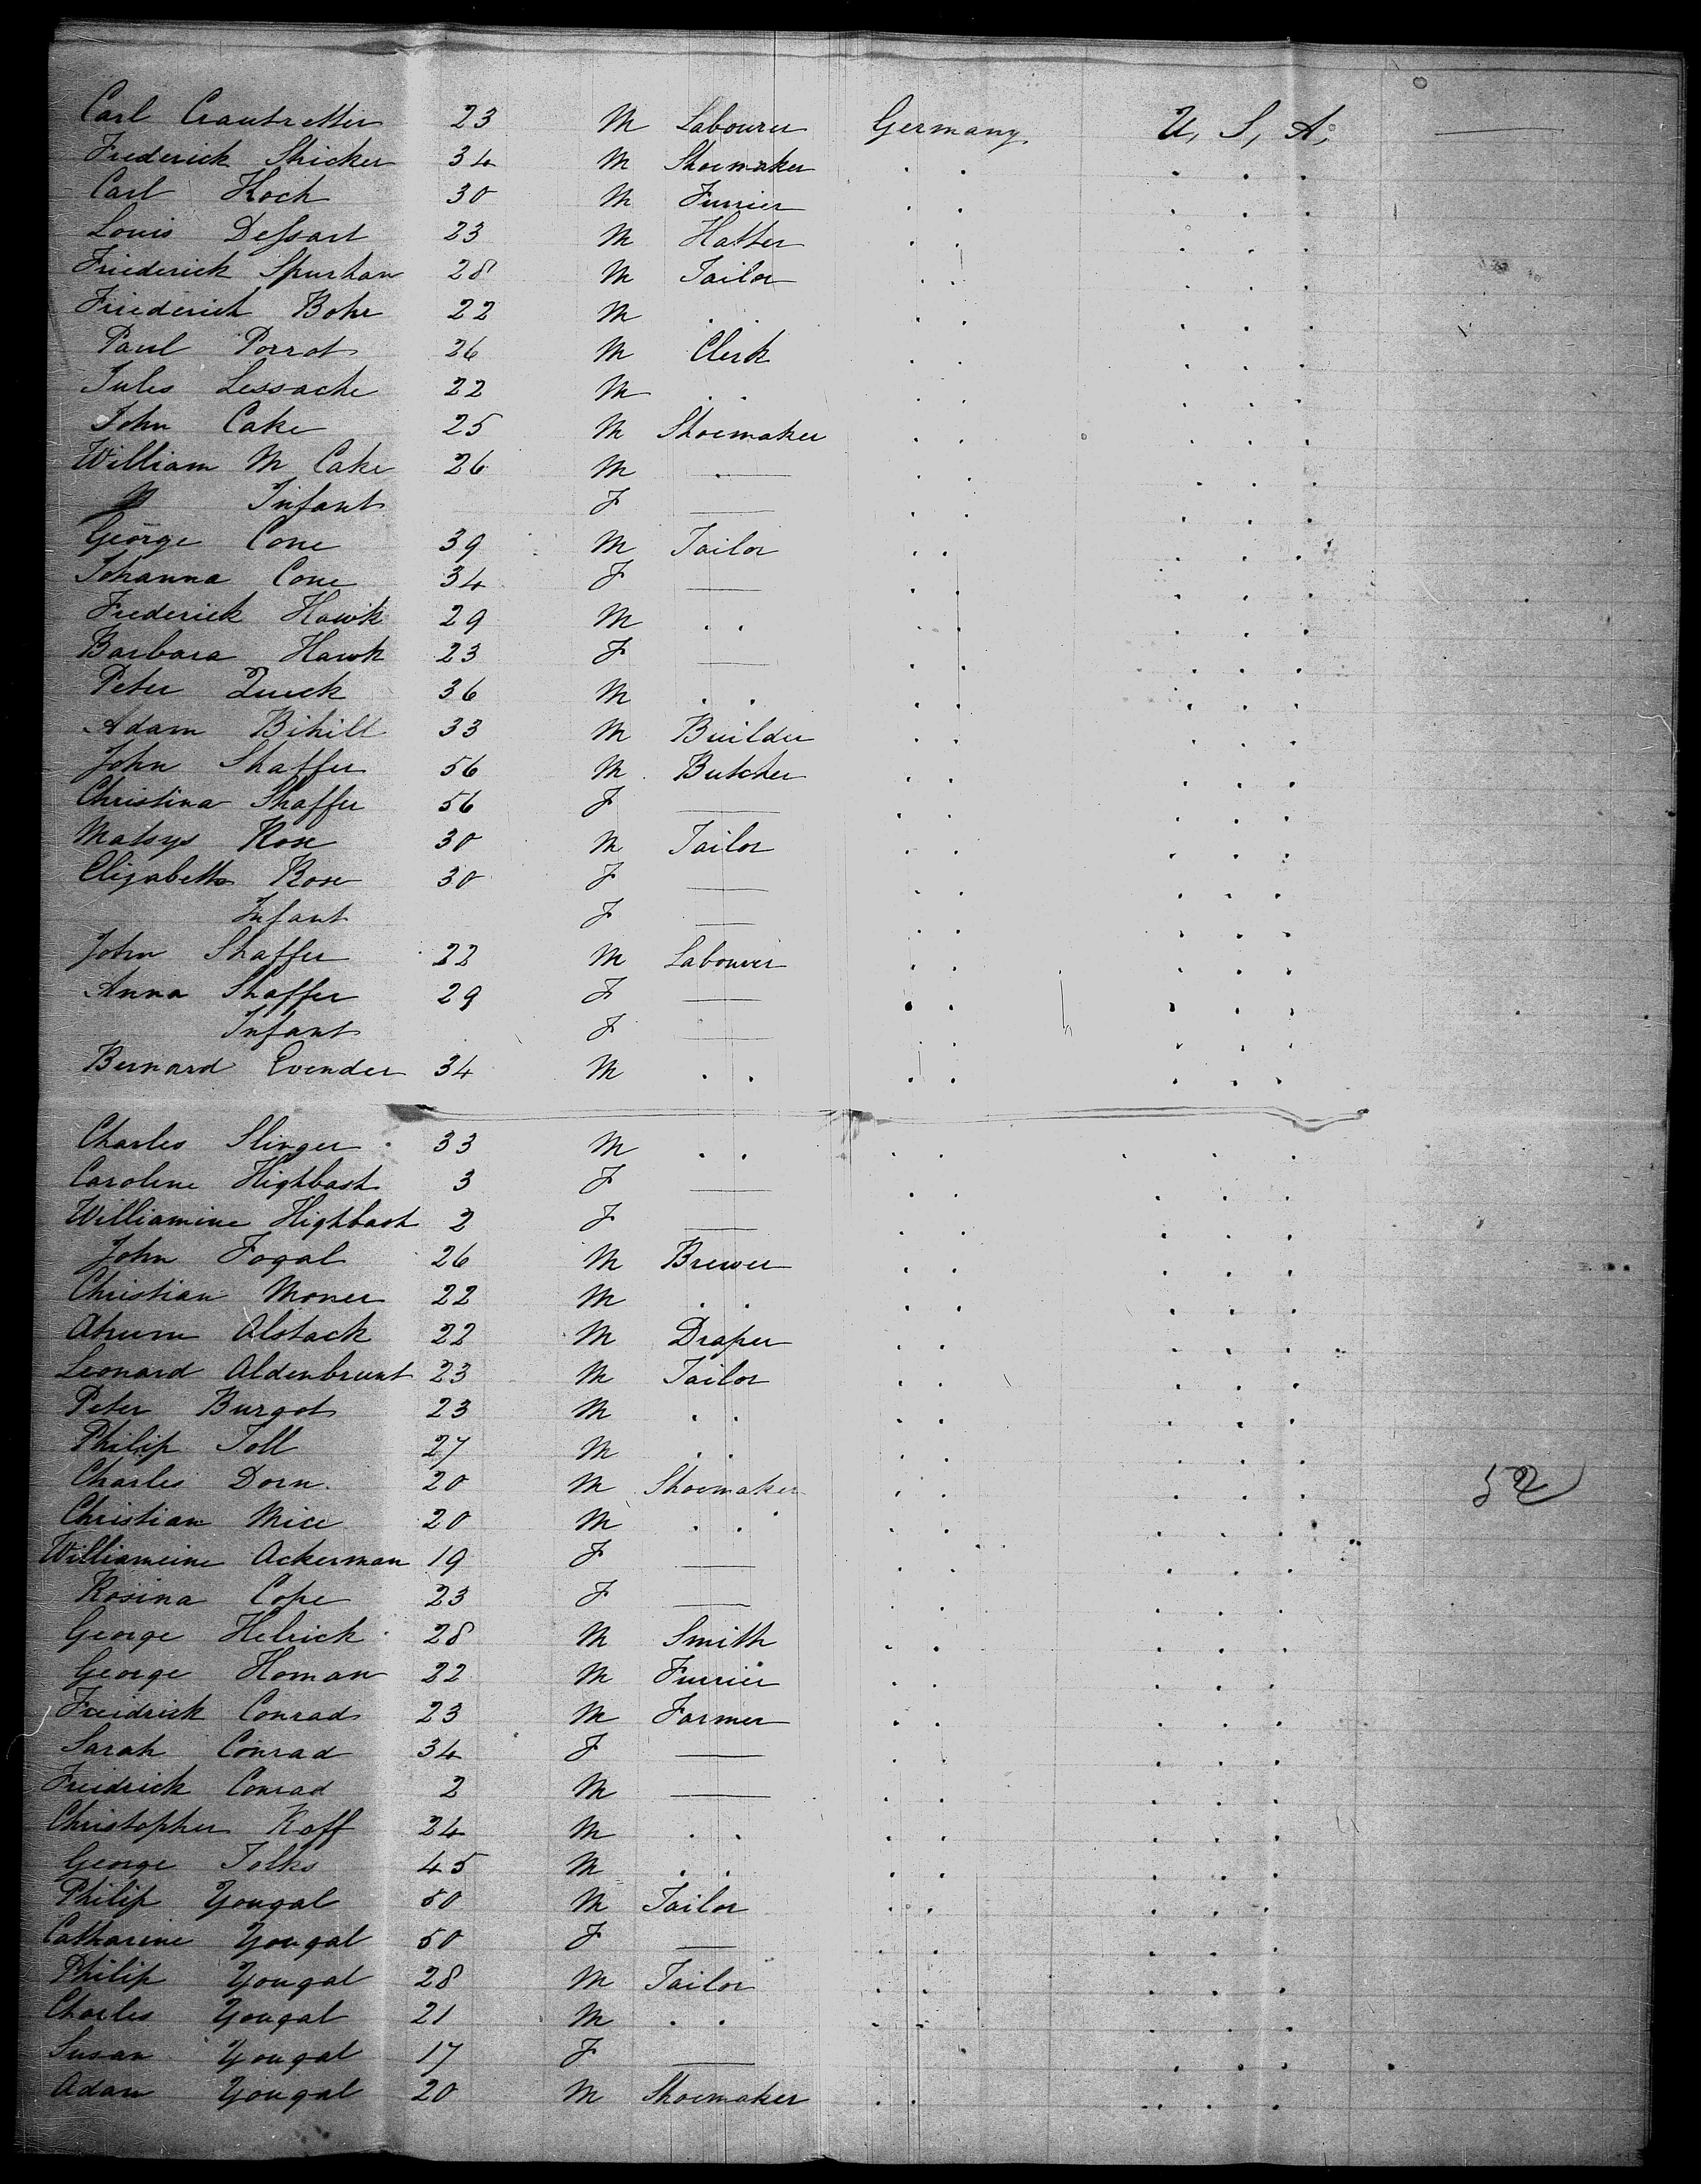 Carl Crautretter 23 M Labourer Germany U, S, A, —
Frederick Shicker 34 M Shoemaker . . . . .
Carl Koch 30 M Furrier . . . . .
Louis Dessart 23 M Hatter . . . . .
Friederick Spurhan 28 M Tailor . . . . .
Friederick Bohr 22 M . . . . . . .
Paul Porrot 26 M Clerk . . . . .
Jules Lessache 22 M . . . . . . .
John Cake 25 M Shoemaker . . . . .
William M Cake 26 M — . . . . .
Infant F — . . . . .
George Cone 39 M Tailor . . . . .
Johanna Cone 34 F — . . . . .
Frederick Hawk 29 M . . . . . . .
Barbara Hawk 23 F — . . . . .
Peter Quick 36 M . . . . . . .
Adam Bihill 33 M Builder . . . . .
John Shaffer 56 M Butcher . . . . .
Christina Shaffer 56 F — . . . . .
Matsys Rose 30 M Tailor . . . . .
Elizabeth Rose 30 F — . . . . .
Infant F — . . . . .
John Shaffer 22 M Labourer . . . . .
Anna Shaffer 29 F — . . . . .
Infant F — . . . . .
Bernard Evender 34 M . . . . . . .
Charles Slinger 33 M . . . . . . .
Caroline Highbash 3 F — . . . . .
Williamine Highbash 2 F — . . . . .
John Fogal 26 M Brewer . . . . .
Christian Moner 22 M . . . . . . .
Alstack 22 M Draper . . . . .
Leonard Aldenbrunt 23 M Tailor . . . . .
Peter Burgot 23 M . . . . . . .
Philip Toll 27 M . . . . . . .
Charles Dorn 20 M Shoemaker . . . . . 52
Christian Mice 20 M . . . . . . .
Williameine Ackerman 19 F — . . . . .
Rosina Cope 23 F — . . . . .
George Helrick 28 M Smith . . . . .
George Homan 22 M Furrier . . . . .
Freidrick Conrad 23 M Farmer . . . . .
Sarah Conrad 34 F — . . . . .
Freidrick Conrad 2 M — . . . . .
Christopher Koff 24 M . . . . . . .
George Tolks 45 M . . . . . . .
Philip Yougal 50 M Tailor . . . . .
Catharine Yougal 50 F — . . . . .
Philip Yougal 28 M Tailor . . . . .
Charles Yougal 21 M . . . . . . .
Susan Yougal 17 F — . . . . .
Adam Yougal 20 M Shoemaker . . . . .